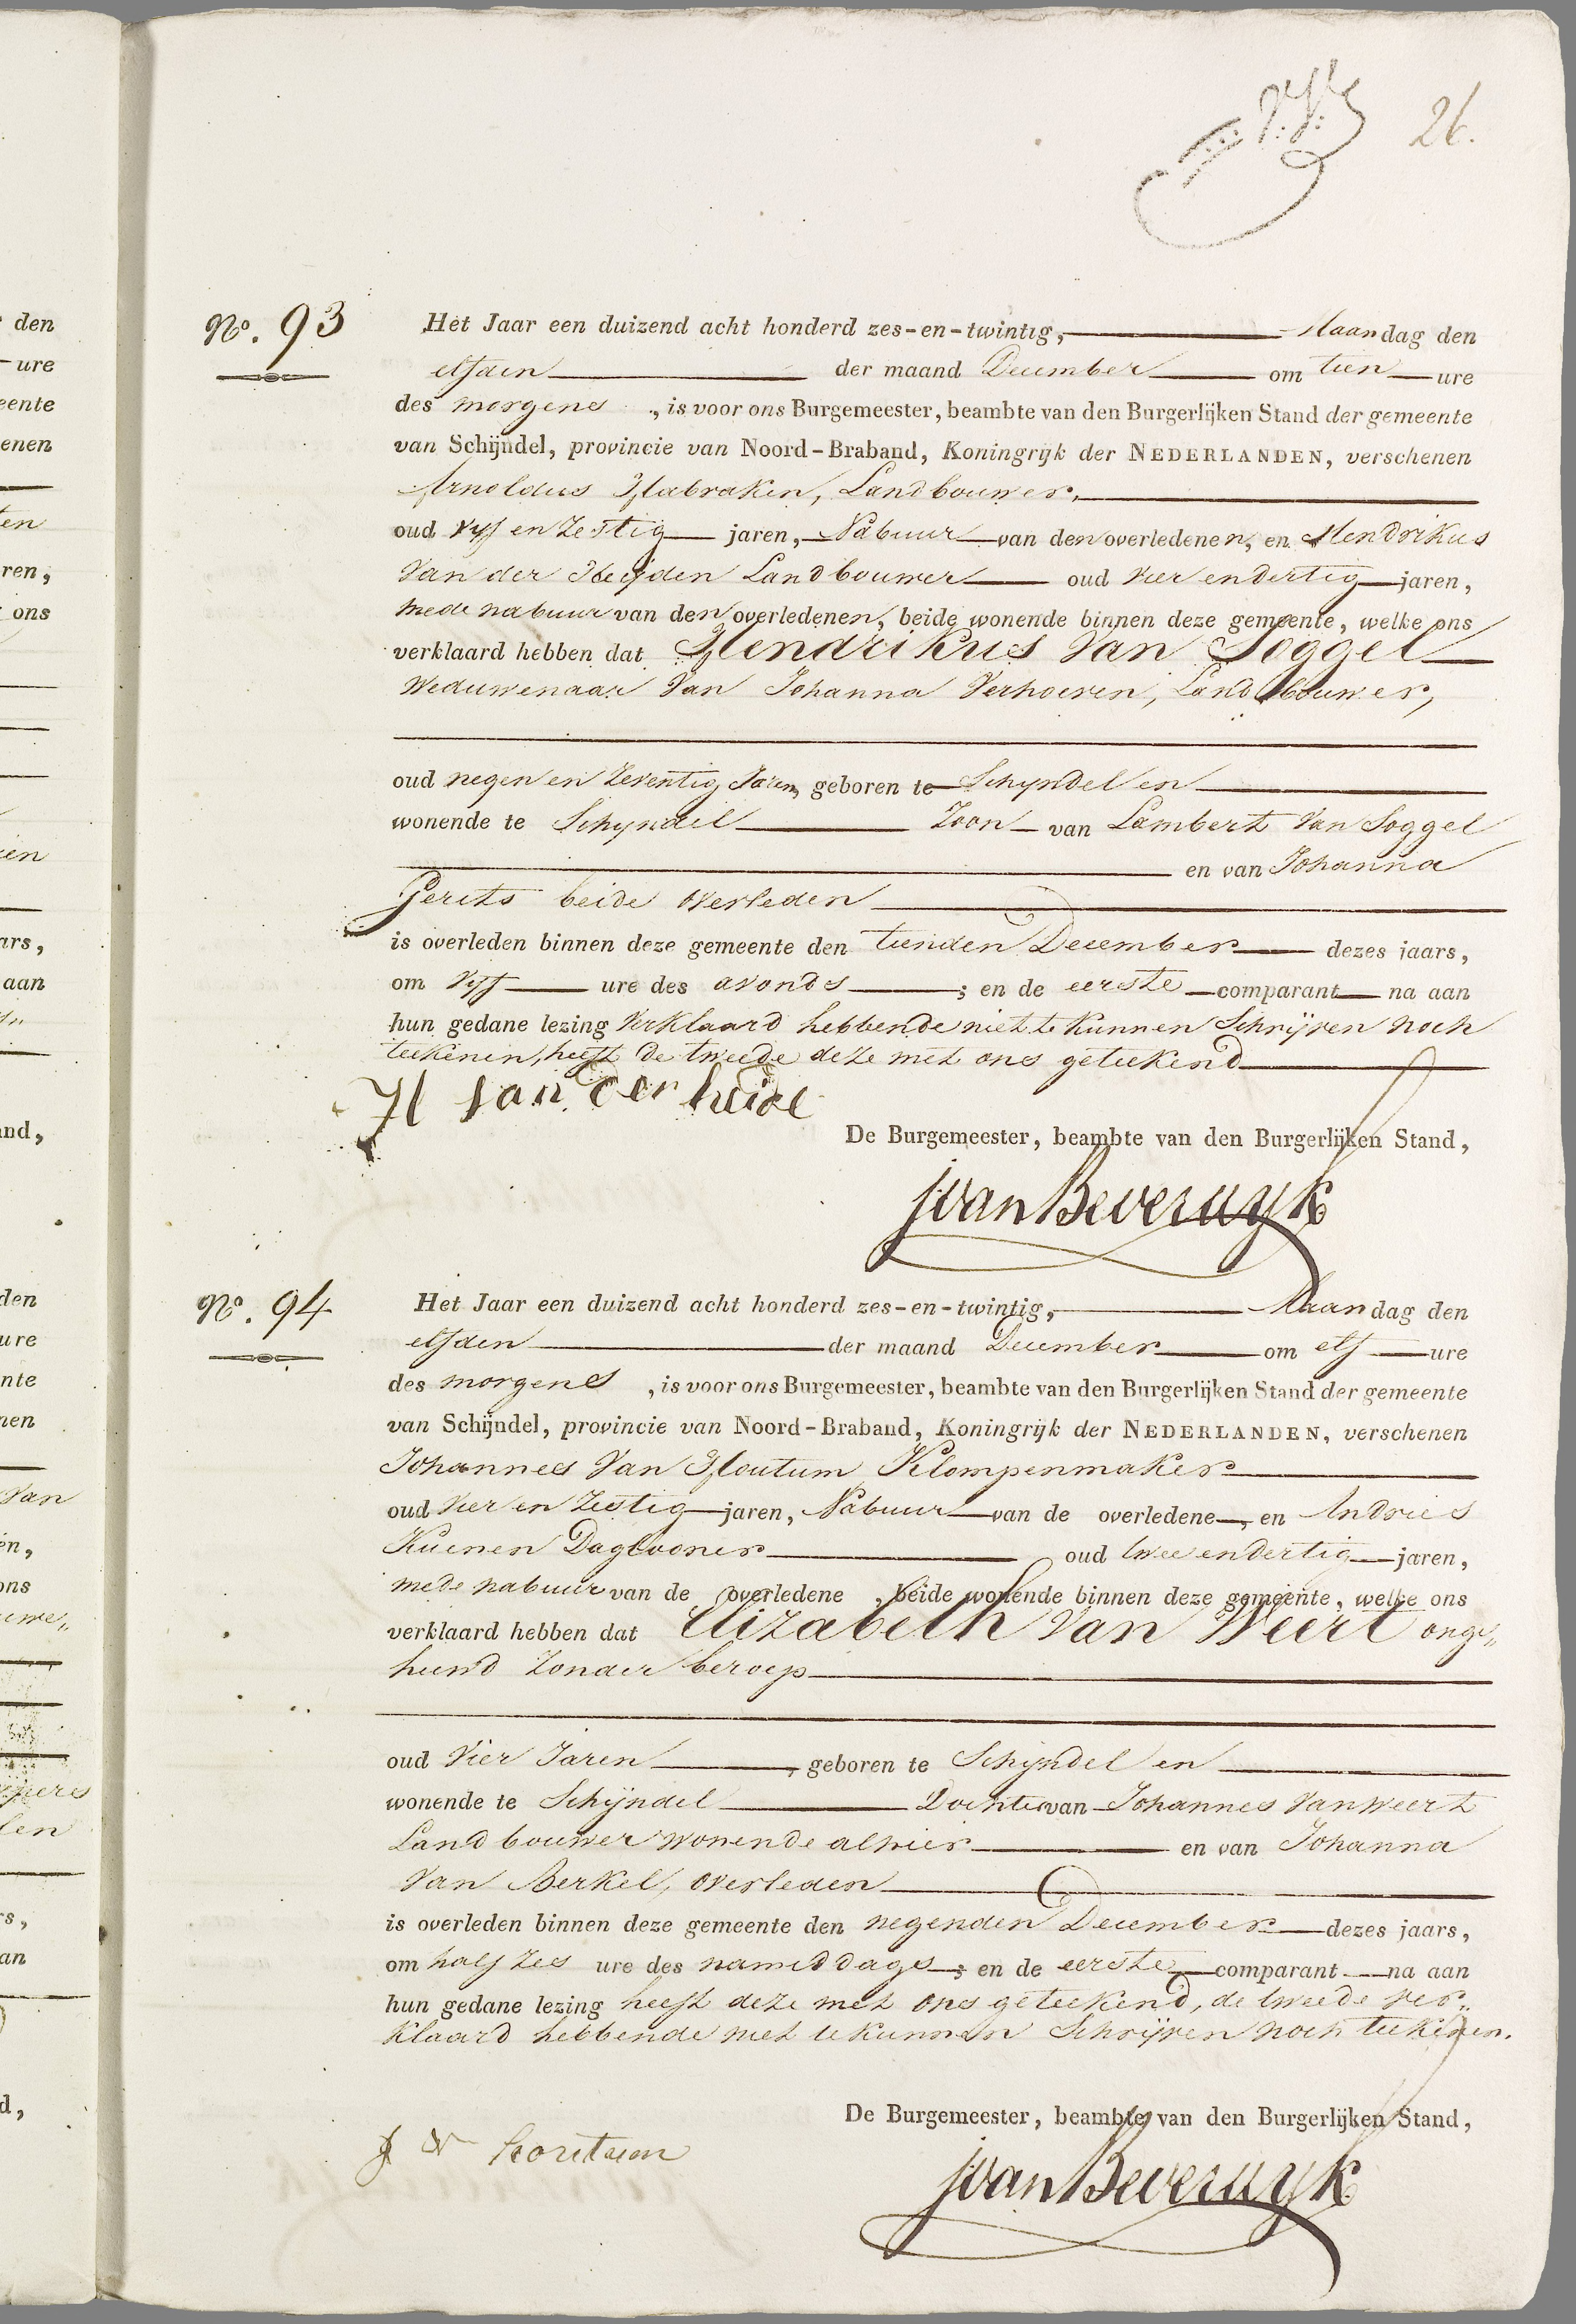 26.
No. 93
Het Jaar een duizend acht honderd zes-en-twintig, Maandag den
elfden der maand December om tien ure
des morgens, is voor ons Burgemeester, beambte van den Burgerlijken Stand der gemeente
van Schijndel, provincie van Noord-Braband, Koningrijk der NEDERLANDEN, verschenen
Arnoldus Habraken, Landbouwer,
oud vyf en Zestig jaren, Nabuur van den overledenen, en Hendrikus
Van der Heijden Landbouwer oud vier en dertig jaren,
mede nabuur van den overledenen, beide wonende binnen deze gemeente, welke ons
verklaard hebben dat Hendrikus Van Soggel
Weduwenaar Van Johanna Verhoeven, Landbouwer,
oud negen en Zeventig Jaren, geboren te Schyndel en
wonende te Schyndel Zoon van Lambert Van Soggel
en van Johanna
Gerits beide overleden
is overleden binnen deze gemeente den tienden December dezes jaars,
om vyf ure des avonds; en de eerste comparant na aan
hun gedane lezing Verklaard hebbende niet te Kunnen Schrijven noch
teekenen, heeft de tweede deze met ons geteekend
H van der heide
De Burgemeester, beambte van den Burgerlijken Stand,
JvanBeverwyk
No. 94
Het Jaar een duizend acht honderd zes-en-twintig, Maandag den
elfden der maand December om elf ure
des morgens, is voor ons Burgemeester, beambte van den Burgerlijken Stand der gemeente
van Schijndel, provincie van Noord-Braband, Koningrijk der NEDERLANDEN, verschenen
Johannes Van Houtum Klompenmaker
oud vier en Zestig jaren, Nabuur van de overledene, en Andries
Kuenen Daglooner oud twee en dertig jaren,
mede nabuur van de overledene, beide wonende binnen deze gemeente, welke ons
verklaard hebben dat Elizabeth Van Weert onge„
huwd Zonder beroep
oud Vier Jaren, geboren te Schijndel en
wonende te Schijndel Dochter van Johannes Van Weert
Landbouwer wonende alhier en van Johanna
Van Berkel, overleden
is overleden binnen deze gemeente den negenden December dezes jaars,
om half Zes ure des namiddags; en de eerste comparant na aan
hun gedane lezing heeft deze met ons geteekend, de tweede ver„
klaard hebbende niet te kunnen Schrijven noch teekenen.
De Burgemeester, beambte van den Burgerlijken Stand,
J V houtum
JvanBeverwyk